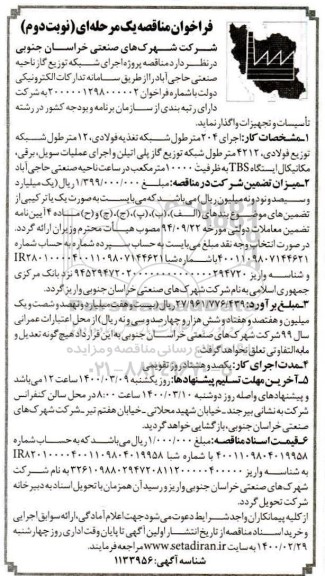 فراخوان مناقصه یک مرحله‌ای (نوبت دوم)
شرکت شهرک‌های صنعتی خراسان جنوبی
در نظر دارد مناقصه پروژه اجرای شبکه توزیع گاز ناحیه
صنعتی حاجی آباد را از طریق سامانه تدارکات الکترونیکی
دولت با شماره فراخوان ۲۰۰۰۰۰۱۲۹۸۰۰۰۰۰۲ به شرکت
دارای رتبه بندی از سازمان برنامه و بودجه کشور در رشته
تأسیسات و تجهیزات واگذار نماید.
۱-مشخصات کار: اجرای ۲۰۴ متر طول شبکه تغذیه فولادی، ۱۲ متر طول شبکه
توزیع فولادی، ۴۲۱۲ متر طول شبکه توزیع گاز پلی اتیلن و اجرای عملیات سویل، برقی،
مکانیکال ایستگاه TBS به ظرفیت ۱۰۰۰۰ متر مکعب در ساعت ناحیه صنعتی حاجی آباد
۲-میزان تضمین شرکت در مناقصه: مبلغ ۱/۳۹۹/۰۰۰/۰۰۰ ریال (یک میلیارد
و سیصد و نود و نه میلیون ریال) می باشد که می‌بایست به صورت یک یا ترکیبی از
تضمین های موضوع بندهای (الف)، (ب)، (پ)، (ج)، (چ)، (ح) ماده ۴ آیین نامه
تضمین معاملات دولتی مورخه ۹۴/۰۹/۲۲ مصوب هیات محترم وزیران ارائه گردد.
در صورت انتخاب وجه نقد مبلغ می‌بایست به حساب سپرده شماره به حساب شماره
۴۰۰۱۱۰۹۸۰۷۱۴۴۶۲۱ با شماره شبا
و شناسه واریز
نزد بانک مرکزی
جمهوری اسلامی به نام شرکت شهرک های صنعتی خراسان جنوبی واریز گردد.
۳-مبلغ برآورد: ۲۷/۹۶۱/۷۷۶/۴۳۹ ریال (بیست و هفت میلیارد و نهصد و شصت و یک
میلیون و هفتصد و هفتاد و شش هزار و چهارصد و سی و نه ریال) از محل اعتبارات عمرانی
سال ۹۹ شرکت شهرک های صنعتی خراسان جنوبی به این قرارداد هیچ گونه تعدیل و
مابه التفاوتی تعلق نخواهد گرفت.
۴-مدت اجرای کار: یکصد و هشتاد روز تقویمی
۵-آخرین مهلت تسلیم پیشنهادها: روز یکشنبه ۱۴۰۰/۰۳/۰۹ ساعت ۱۲ می باشد
و پیشنهادهای واصله روز دوشنبه ۱۴۰۰/۰۳/۱۰ ساعت ۸:۰۰ در محل سالن کنفرانس
شرکت به نشانی بیرجند-خیابان شهید محلاتی-خیابان هفتم تیر-شرکت شهرک های
صنعتی خراسان جنوبی، بازگشایی خواهد گردید.
۶-قیمت اسناد مناقصه: مبلغ ۱/۰۰۰/۰۰۰ ریال می باشد که به حساب شماره
۴۰۰۱۱۰۹۸۰۴۰۱۹۹۵۸ با شماره شبا
به شناسه واریز
به نام شرکت
شهرک های صنعتی خراسان جنوبی واریز و رسید آن همزمان با تحویل اسناد به دبیرخانه
شرکت تحویل گردد.
از کلیه پیمانکاران واجد شرایط دعوت می شود جهت اعلام آمادگی، ارائه سوابق اجرایی
و خرید اسناد مناقصه از تاریخ انتشار اولین آگهی تا پایان وقت اداری روز چهارشنبه
۱۴۰۰/۰۲/۲۹ به سایت www.setadiran.ir مراجعه فرمایند.
شناسه آگهی: ۱۱۳۳۹۵۶